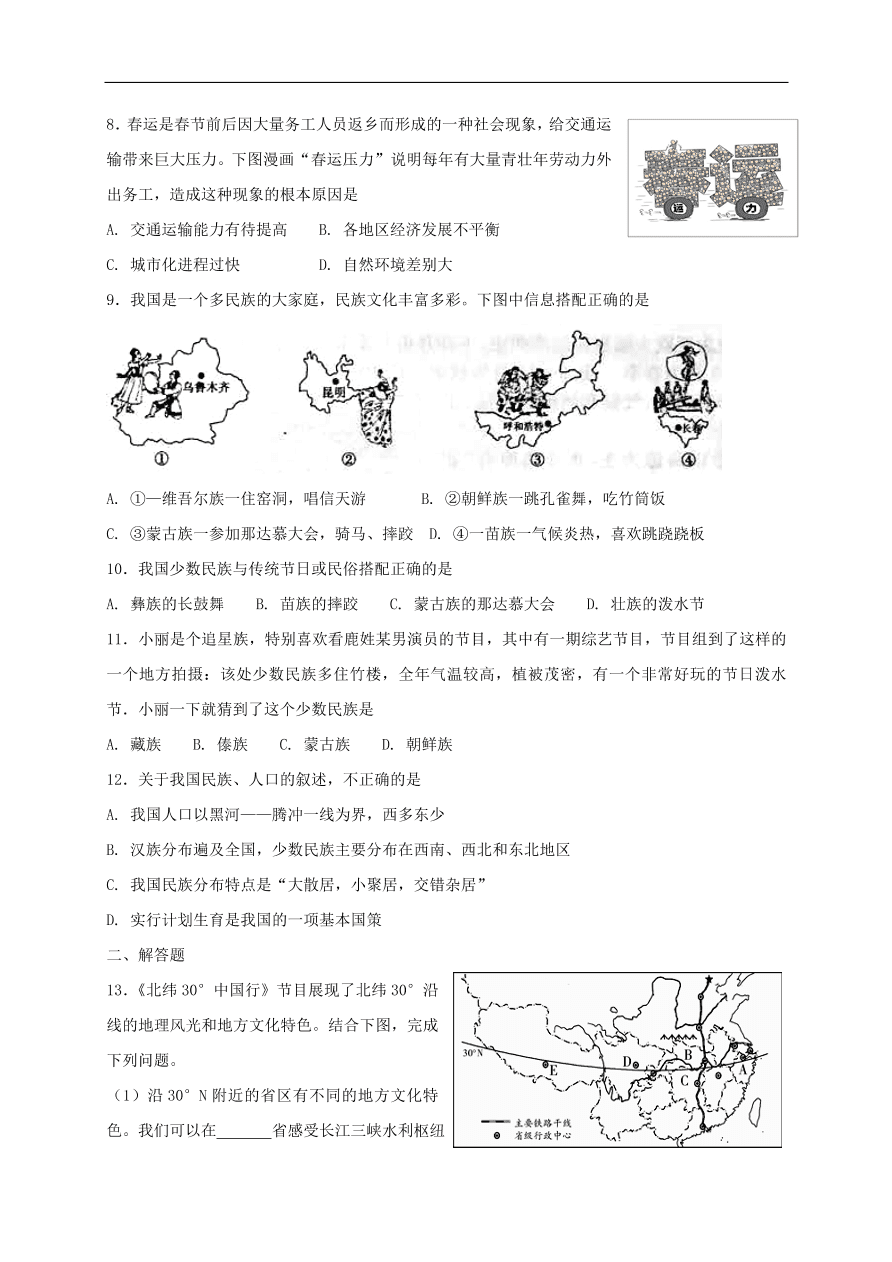 8．春运是春节前后因大量务工人员返乡而形成的一种社会现象，给交通运
输带来巨大压力。下图漫画“春运压力”说明每年有大量青壮年劳动力外
出务工，造成这种现象的根本原因是
春运
运
力
A. 交通运输能力有待提高 B. 各地区经济发展不平衡
C. 城市化进程过快 D. 自然环境差别大
9．我国是一个多民族的大家庭，民族文化丰富多彩。下图中信息搭配正确的是
乌鲁木齐
昆明
呼和浩特
长春
① ② ③ ④
A. ①—维吾尔族一住窑洞，唱信天游 B. ②朝鲜族一跳孔雀舞，吃竹筒饭
C. ③蒙古族一参加那达慕大会，骑马、摔跤 D. ④一苗族一气候炎热，喜欢跳跷跷板
10．我国少数民族与传统节日或民俗搭配正确的是
A. 彝族的长鼓舞 B. 苗族的摔跤 C. 蒙古族的那达慕大会 D. 壮族的泼水节
11．小丽是个追星族，特别喜欢看鹿姓某男演员的节目，其中有一期综艺节目，节目组到了这样的
一个地方拍摄：该处少数民族多住竹楼，全年气温较高，植被茂密，有一个非常好玩的节日泼水
节．小丽一下就猜到了这个少数民族是
A. 藏族 B. 傣族 C. 蒙古族 D. 朝鲜族
12．关于我国民族、人口的叙述，不正确的是
A. 我国人口以黑河——腾冲一线为界，西多东少
B. 汉族分布遍及全国，少数民族主要分布在西南、西北和东北地区
C. 我国民族分布特点是“大散居，小聚居，交错杂居”
D. 实行计划生育是我国的一项基本国策
二、解答题
13．《北纬 30°中国行》节目展现了北纬 30°沿
线的地理风光和地方文化特色。结合下图，完成
下列问题。
（1）沿 30°N 附近的省区有不同的地方文化特
色。我们可以在_______省感受长江三峡水利枢纽
30°N
E
D
B
C
A
主要铁路干线
省级行政中心